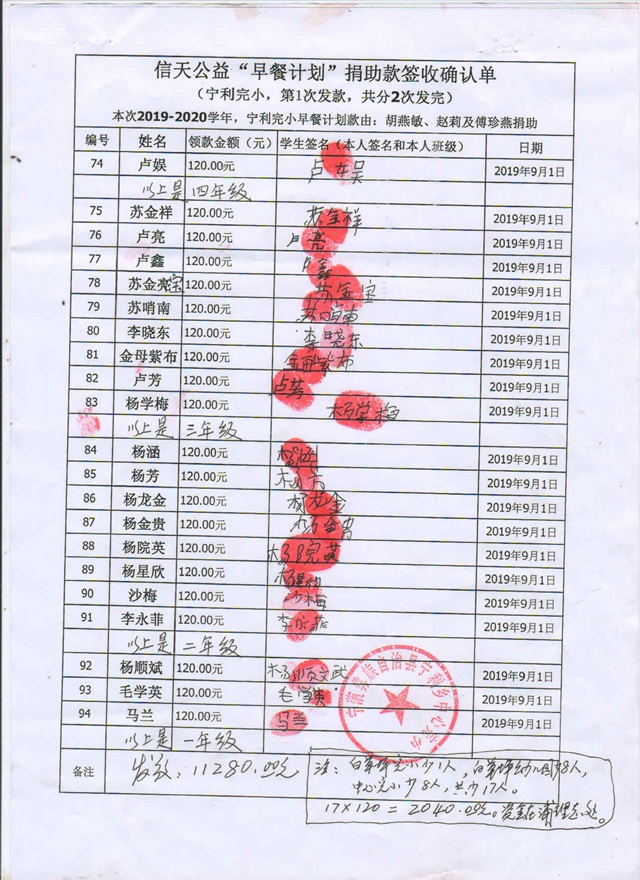 信天公益“早餐计划”捐助款签收确认单
（宁利完小，第1次发款，共分2次发完）
本次2019-2020学年，宁利完小早餐计划款由：胡燕敏、赵莉及傅珍燕捐助
编号 姓名 领款金额（元） 学生签名（本人签名和本人班级） 日期
74 卢娱 120.00元 卢女吴 2019年9月1日
以上是四年级
75 苏金祥 120.00元 苏金祥 2019年9月1日
76 卢亮 120.00元 卢亮 2019年9月1日
77 卢鑫 120.00元 卢鑫 2019年9月1日
78 苏金亮宝 120.00元 苏金宝 2019年9月1日
79 苏哨南 120.00元 2019年9月1日
80 李晓东 120.00元 李晓东 2019年9月1日
81 金母紫布 120.00元 金母紫布 2019年9月1日
82 卢芳 120.00元 卢芳 2019年9月1日
83 杨学梅 120.00元 杨学梅 2019年9月1日
以上是三年级
84 杨涵 120.00元 杨涵 2019年9月1日
85 杨芳 120.00元 杨芳 2019年9月1日
86 杨龙金 120.00元 杨龙金 2019年9月1日
87 杨金贵 120.00元 杨金贵 2019年9月1日
88 杨院英 120.00元 杨院英 2019年9月1日
89 杨星欣 120.00元 2019年9月1日
90 沙梅 120.00元 沙梅 2019年9月1日
91 李永菲 120.00元 李永菲 2019年9月1日
以上是二年级
92 杨顺斌 120.00元 杨顺斌 2019年9月1日
93 毛学英 120.00元 毛学英 2019年9月1日
94 马兰 120.00元 马兰 2019年9月1日
以上是一年级
宁蒗彝族自治县宁利乡中心完小
备注 发放：11280.00元
注：白草坪完小少1人，白草坪幼儿园少8人，
中心完小少8人，共少17人。
17×120＝2040.00元。资金在